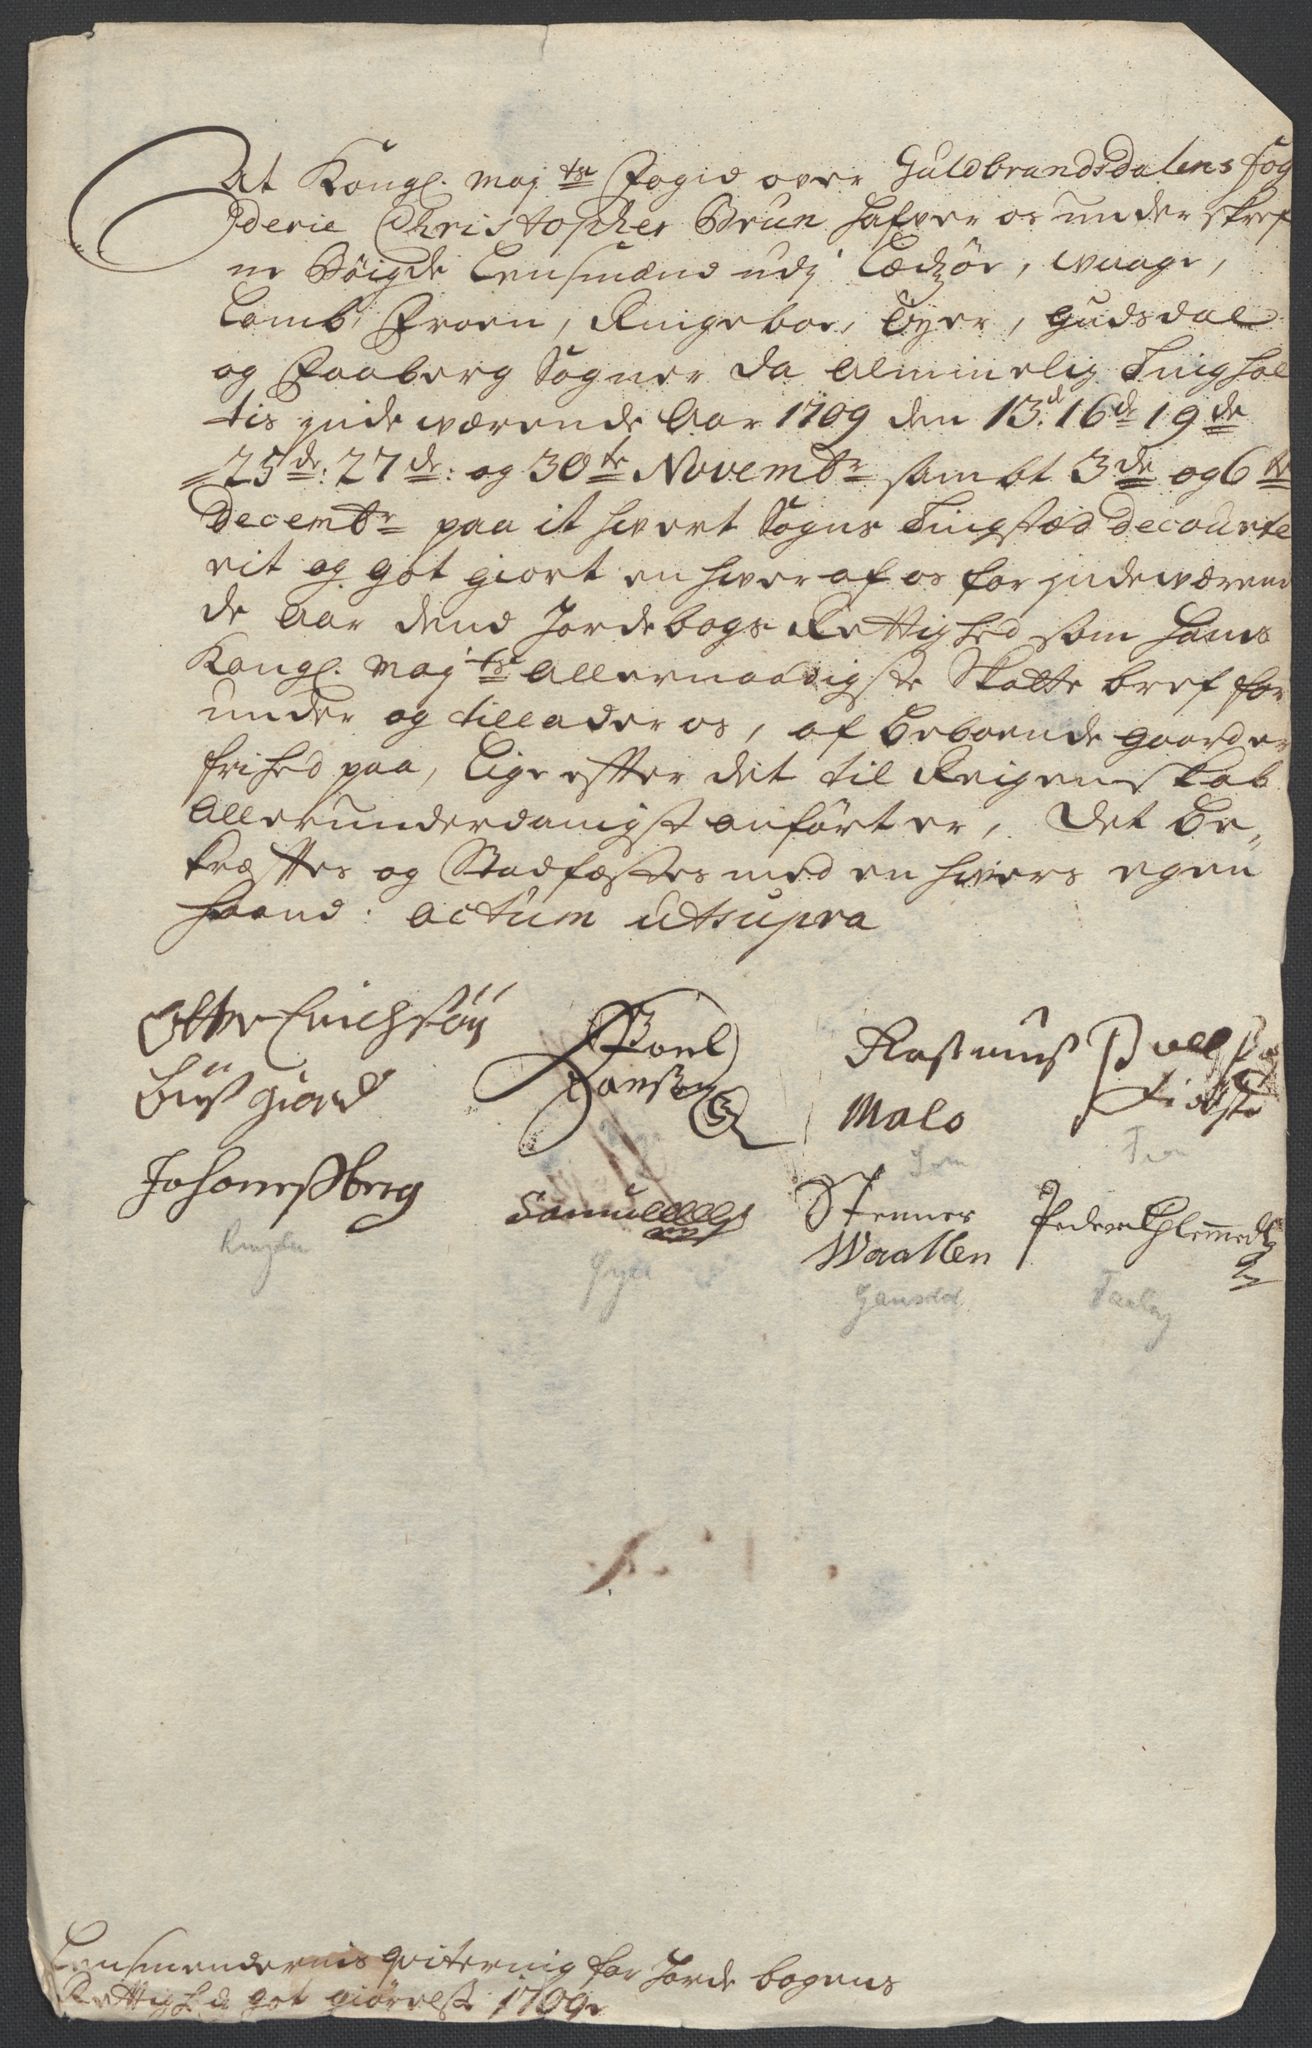 At Kongl. May.ts Fogid over Guldbrandsdalens fog
derie Christopher Brun hafver os underskref
ne Bøigde Lensmænd udj Lædsøe, Waage,
Lomb, Froen, Ringeboe, Øyer, Gudsdal
og Faaberg Sogner da Almindelig Ting hol
tis inde værende Aar 1709 den 13.d 16de 19de
25de. 27de. og 30te Novembr sambt 3de og 6te
Decembr paa it hvert Sogns Tingstæd decourte
rit og got giort en hver af os for indeværend
de Aar dend Jordebogs Rettighed som Hans
Kongl. May.ts Allernaadigste Skatte bref for
under og tillader os, af beboende gaarder
frihed paa, lige efter det til Reigenskab
Allerunderdanigst anført er, Det be„
kræftes og Stadfæstes med en hvers egen
haand. actum ut supra
Otter Erichsøn
Poul
Hansen
Rasmus
Biøst giord
Malo
Lom
Fron
Johanes Berg
Ringebu
Samuel
Øyer
Stenner
Waallen
Gausdal
Peder
Faaberg
Lensmendernis qvitering for Jorde bogens
Rettighed got giørelse 1709.